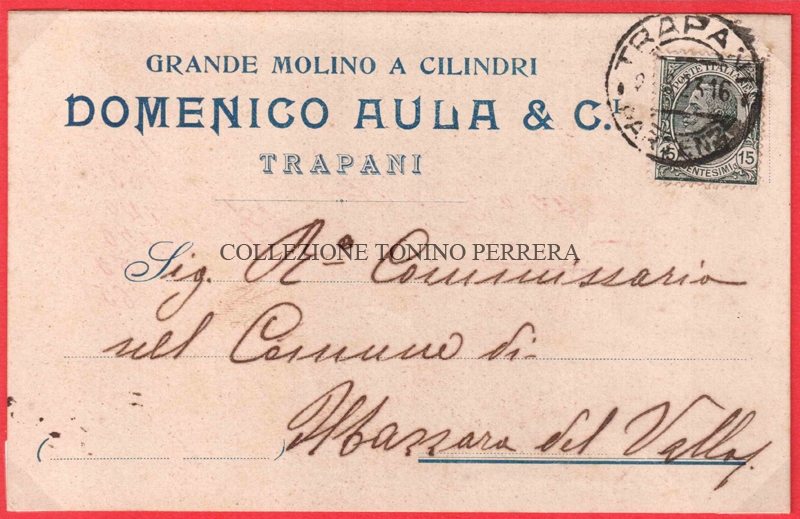 GRANDE MOLINO A CILINDRI
DOMENICO AULA & C.
TRAPANI
TRAPANI
POSTE ITALIANE
3·16
PARTENZE
15 CENTESIMI 15
COLLEZIONE TONINO PERRERA
Sig. Rº Commissario
nel Comune di
Mazzara del Vallo
( )